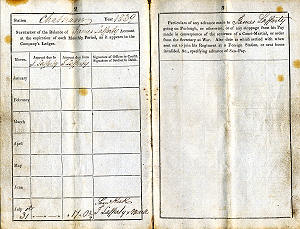 2
Station Chatham Year 1839
STATEMENT of the Balance of James Lafferty Account
at the expiration of each Monthly Period, as it appears in the
Company's Ledger.
MONTHS.
Amount due to
Amount due from
Signature of Officer to Credit.
Signature of Soldier to Debit.
January
February
March
April
May
June
July
31
3
Particulars of any advance made to James Lafferty
going on Furlough, or otherwise, or of any stoppage from his Pay
made in consequence of the sentence of a Court-Martial, or order
from the Secretary at War. Also date to which settled with when
sent out to join his Regiment at a Foreign Station, or sent home
invalided, &c., specifying advance of Sea-Pay.